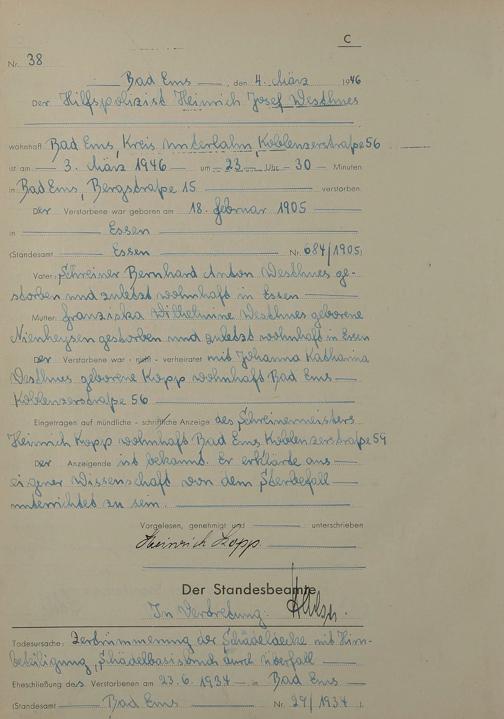 C
Nr. 38
Bad Ems, den 4. März 1946
Der Hilfspolizist Heinrich Josef Westhues
wohnhaft Bad Ems, Kreis Unterlahn, Koblenzerstraße 56
ist am 3. März 1946 um 23 Uhr 30 Minuten
in Bad Ems, Bergstraße 15 verstorben.
Der Verstorbene war geboren am 18. februar 1905
in Essen
(Standesamt Essen Nr. 684/1905)
Vater: Schreiner Bernhard Anton Westhues ge-
storben und zuletzt wohnhaft in Essen
Mutter: franziska Wilhelmine Westhues geborene
Nienheysen gestorben und zuletzt wohnhaft in Essen
Der Verstorbene war - nicht - verheiratet mit Johanna Katharina
Westhues geborene Kopp wohnhaft Bad Ems
Koblenzerstraße 56
Eingetragen auf mündliche - schriftliche Anzeige des Schreinermeisters
Heinrich Kopp wohnhaft Bad Ems Koblenzerstraße 59
Der Anzeigende ist bekannt. Er erklärte aus
eigener Wissenschaft von dem Sterbefall
unterrichtet zu sein.
Vorgelesen, genehmigt und unterschrieben
Heinrich Kopp
Der Standesbeamte
In Vertretung:
Todesursache: Zertrümmerung der Schädeldecke mit Hirn-
beteiligung, Schädelbasisbruch durch Überfall
Eheschließung des Verstorbenen am 23.6.1934 in Bad Ems
(Standesamt Bad Ems Nr. 29/1934).